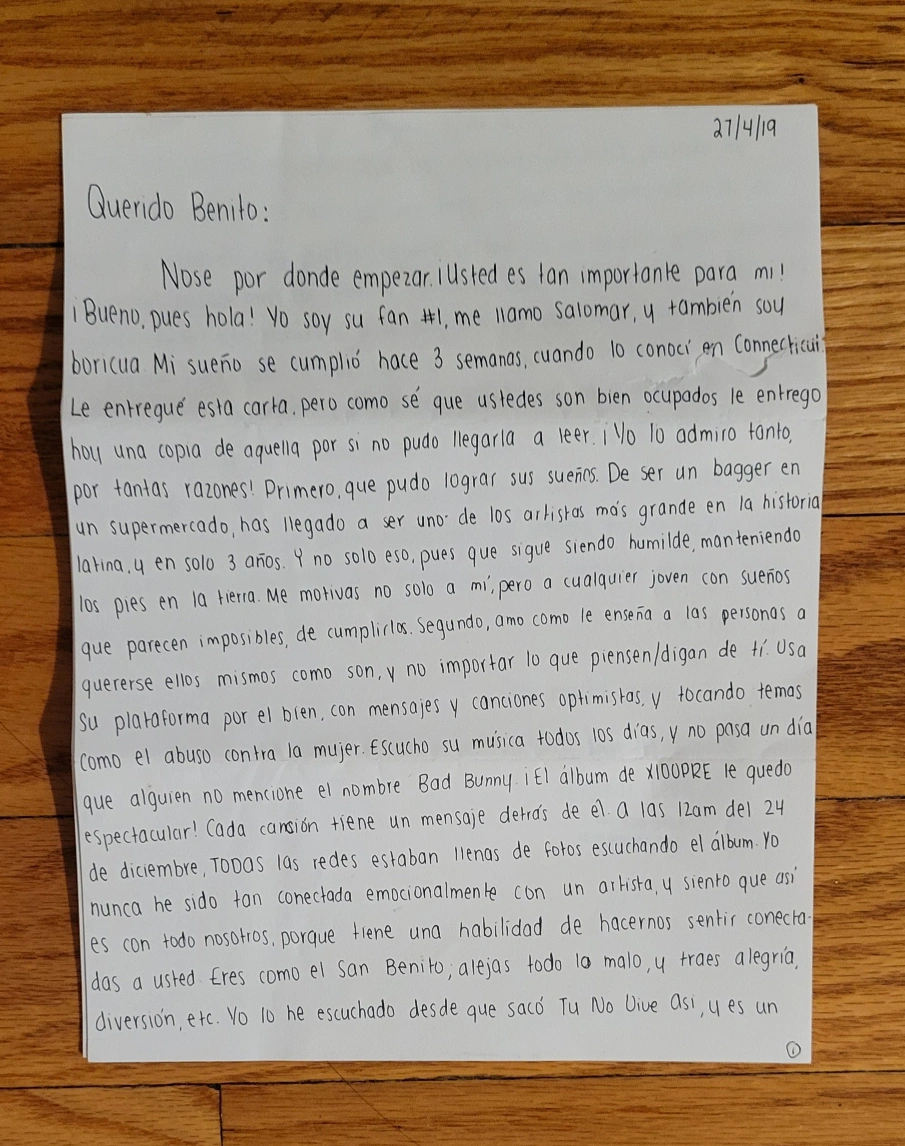 27/4/19
Querido Benito:
Nose por donde empezar. ¡Usted es tan importante para mi!
¡Bueno, pues hola! Yo soy su fan #1, me llamo Salomar, y también soy
boricua Mi sueño se cumplió hace 3 semanas, cuando lo conocí en Connecticut.
Le entregué esta carta, pero como sé que ustedes son bien ocupados le entrego
hoy una copia de aquella por si no pudo llegarla a leer. ¡Yo lo admiro tanto,
por tantas razones! Primero, que pudo lograr sus sueños. De ser un bagger en
un supermercado, has llegado a ser uno de los artistas más grande en la historia
latina, y en solo 3 años. Y no solo eso, pues que sigue siendo humilde, manteniendo
los pies en la tierra. Me motivas no solo a mí, pero a cualquier joven con sueños
que parecen imposibles, de cumplirlos. Segundo, amo como le enseña a las personas a
quererse ellos mismos como son, y no importar lo que piensen/digan de tí. Usa
su plataforma por el bien, con mensajes y canciones optimistas, y tocando temas
como el abuso contra la mujer. Escucho su música todos los días, y no pasa un día
que alguien no mencione el nombre Bad Bunny. ¡El álbum de X100PRE le quedo
espectacular! Cada cansión tiene un mensaje detrás de él. A las 12am del 24
de diciembre, TODAS las redes estaban llenas de fotos escuchando el álbum. Yo
nunca he sido tan conectada emocionalmente con un artista, y siento que así
es con todo nosotros, porque tiene una habilidad de hacernos sentir conecta-
das a usted. Eres como el San Benito; alejas todo lo malo, y traes alegría,
diversión, etc. Yo lo he escuchado desde que sacó Tu No Vive Asi, y es un
1